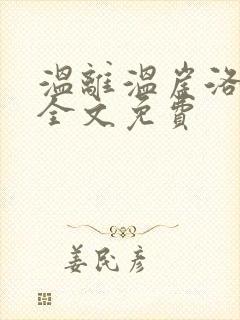 温離温崖洛
全文免費
姜民彦